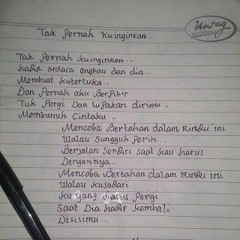 Untag
Tak Pernah Kuinginkan
Tak Pernah Kuinginkan...
antara engkau dan dia...
Membuat kuterluka...
Dan Pernah aku Berpikir
Tuk Pergi Dan Lupakan dirimu...
Membunuh Cintaku...
Mencoba Bertahan dalam Rindu ini
Walau Sungguh Perih...
Berjalan Seorang Saat kau harus
Dengannya...
Mencoba Bertahan dalam Rindu ini
Walau Kusadari
Pergi
Saat Dia hadir kembali
Disisimu...